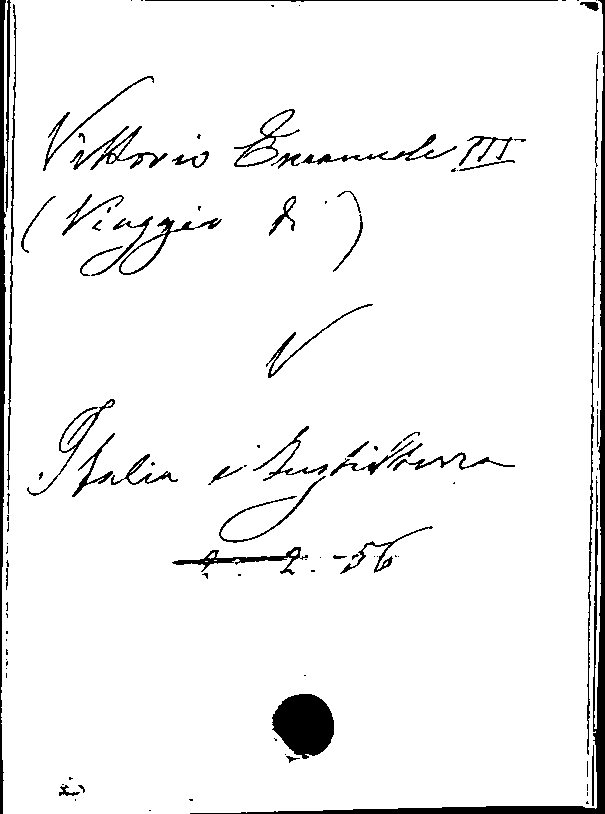 Vittorio Emanuele III
(Viaggio di)
V
Italia e Inghilterra
2. -56